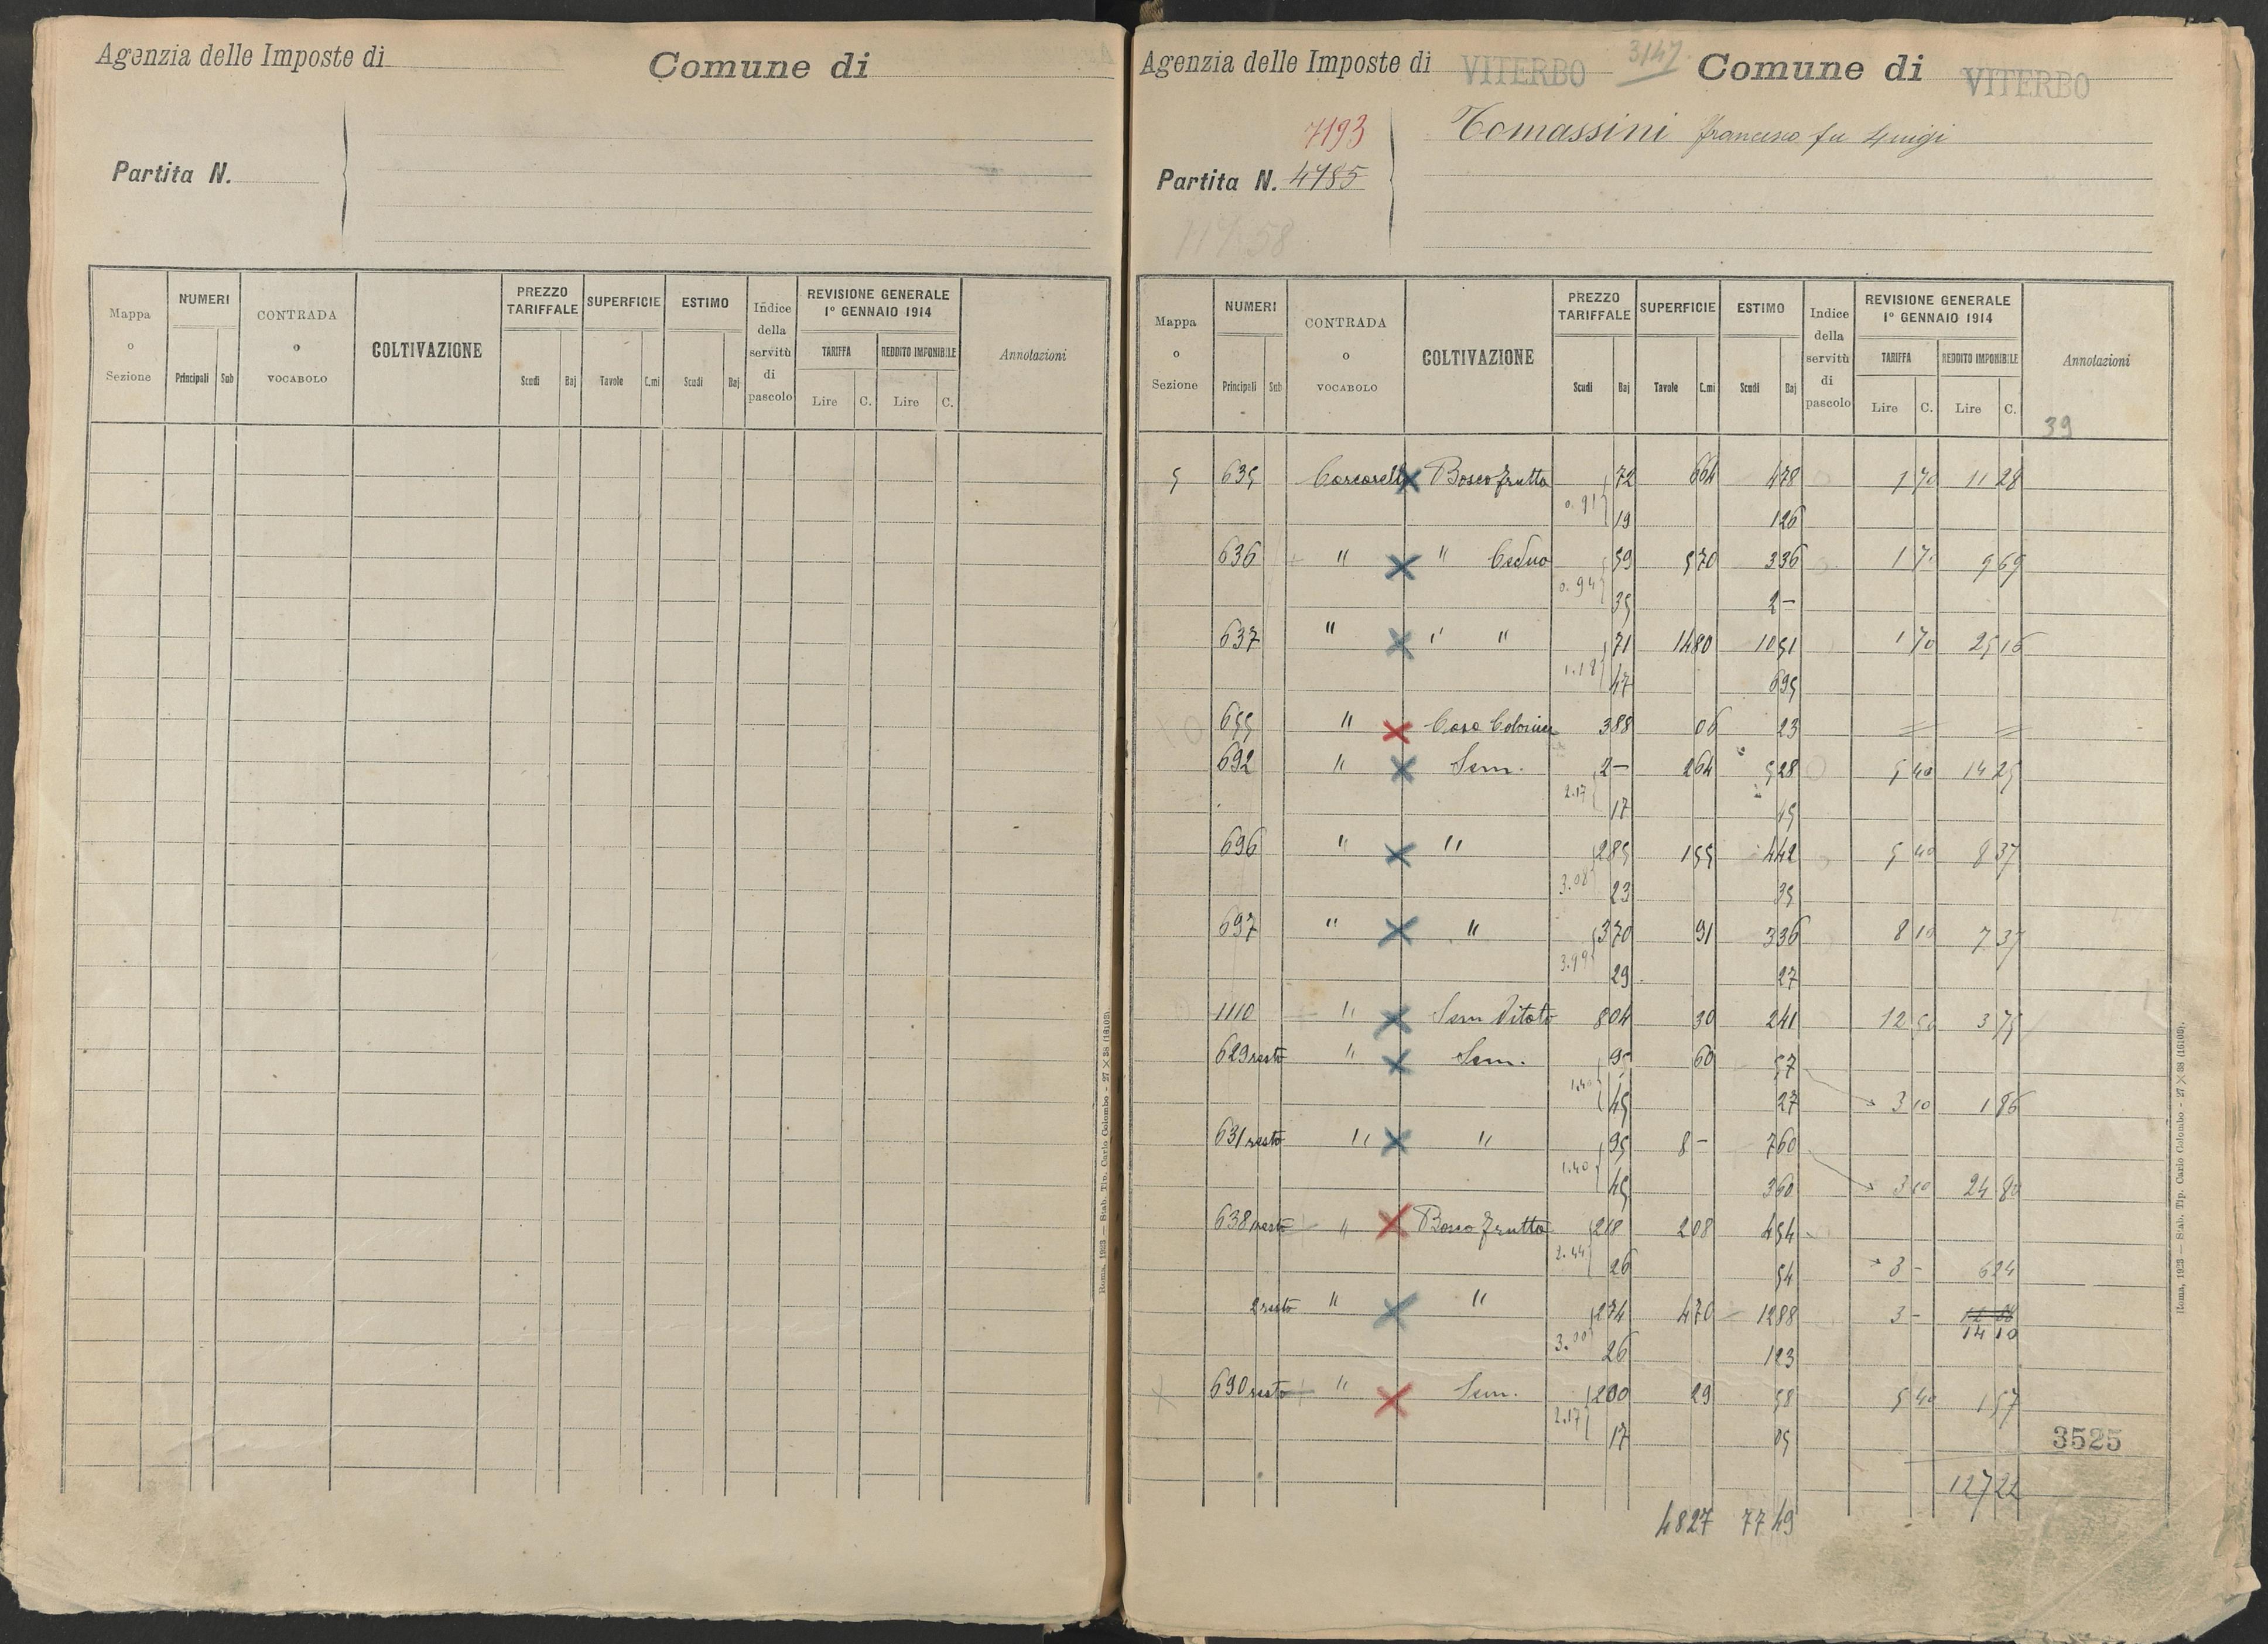 Agenzia delle Imposte di Comune di
Partita N.
Mappa o Sezione NUMERI Principali Sub CONTRADA o VOCABOLO COLTIVAZIONE PREZZO TARIFFALE Scudi Baj SUPERFICIE Tavole C.mi ESTIMO Scudi Baj Indice della servitù di pascolo REVISIONE GENERALE 1° GENNAIO 1914 TARIFFA Lire C. REDDITO IMPONIBILE Lire C. Annotazioni
Roma, 1923 — Stab. Tip. Carlo Colombo - 27 × 38 (16103).
Agenzia delle Imposte di VITERBO 3147 Comune di VITERBO
7193 Tomassini francesco fu Luigi
Partita N. 4785
Mappa o Sezione NUMERI Principali Sub CONTRADA o VOCABOLO COLTIVAZIONE PREZZO TARIFFALE Scudi Baj SUPERFICIE Tavole C.mi ESTIMO Scudi Baj Indice della servitù di pascolo REVISIONE GENERALE 1° GENNAIO 1914 TARIFFA Lire C. REDDITO IMPONIBILE Lire C. Annotazioni
39
5 635 Bosco frutto 72 664 478 1 70 11 28
0.91 19 126
636 " " Ceduo 59 570 336 1 70 9 69
0.94 35 2 —
637 " " " 71 1480 1051 1 70 25 16
1.18 47 695
655 " Casa Colonica 388 06 23 = =
692 " Sem. 2 — 264 528 5 40 14 25
2.17 17 45
696 " " 285 155 442 5 40 8 37
3.08 23 35
697 " " 370 91 336 8 10 7 37
3.99 29 27
1110 " Sem Vitato 804 30 241 12 50 3 75
629 resto " Sem. 95 60 57
1.40 45 27 3 10 1 86
631 resto " " 95 8 — 760
1.40 45 360 3 10 24 80
638 resto " Bosco frutto 218 208 454
2.44 26 54 3 - 6 24
2 resto " " 274 470 1288 3 -
14 10
3.00 26 123
690 resto " Sem. 200 29 58 5 40 1 57
2.17 17 05
3525
127 22
48 27 77 49
Roma, 1923 — Stab. Tip. Carlo Colombo - 27 × 38 (16103).